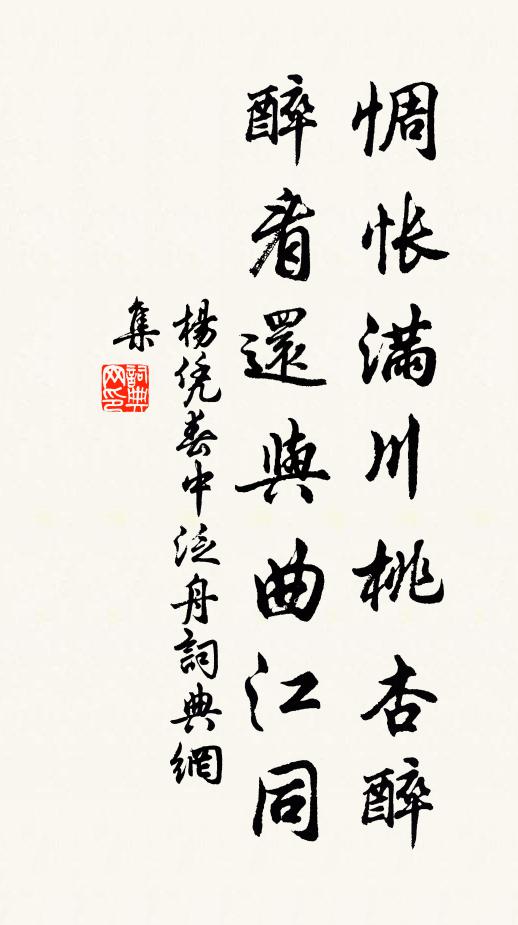 惆怅滿川桃杏醉
醉看還與曲江同
楊凭春中泛舟詞典網
集
詞典
网印